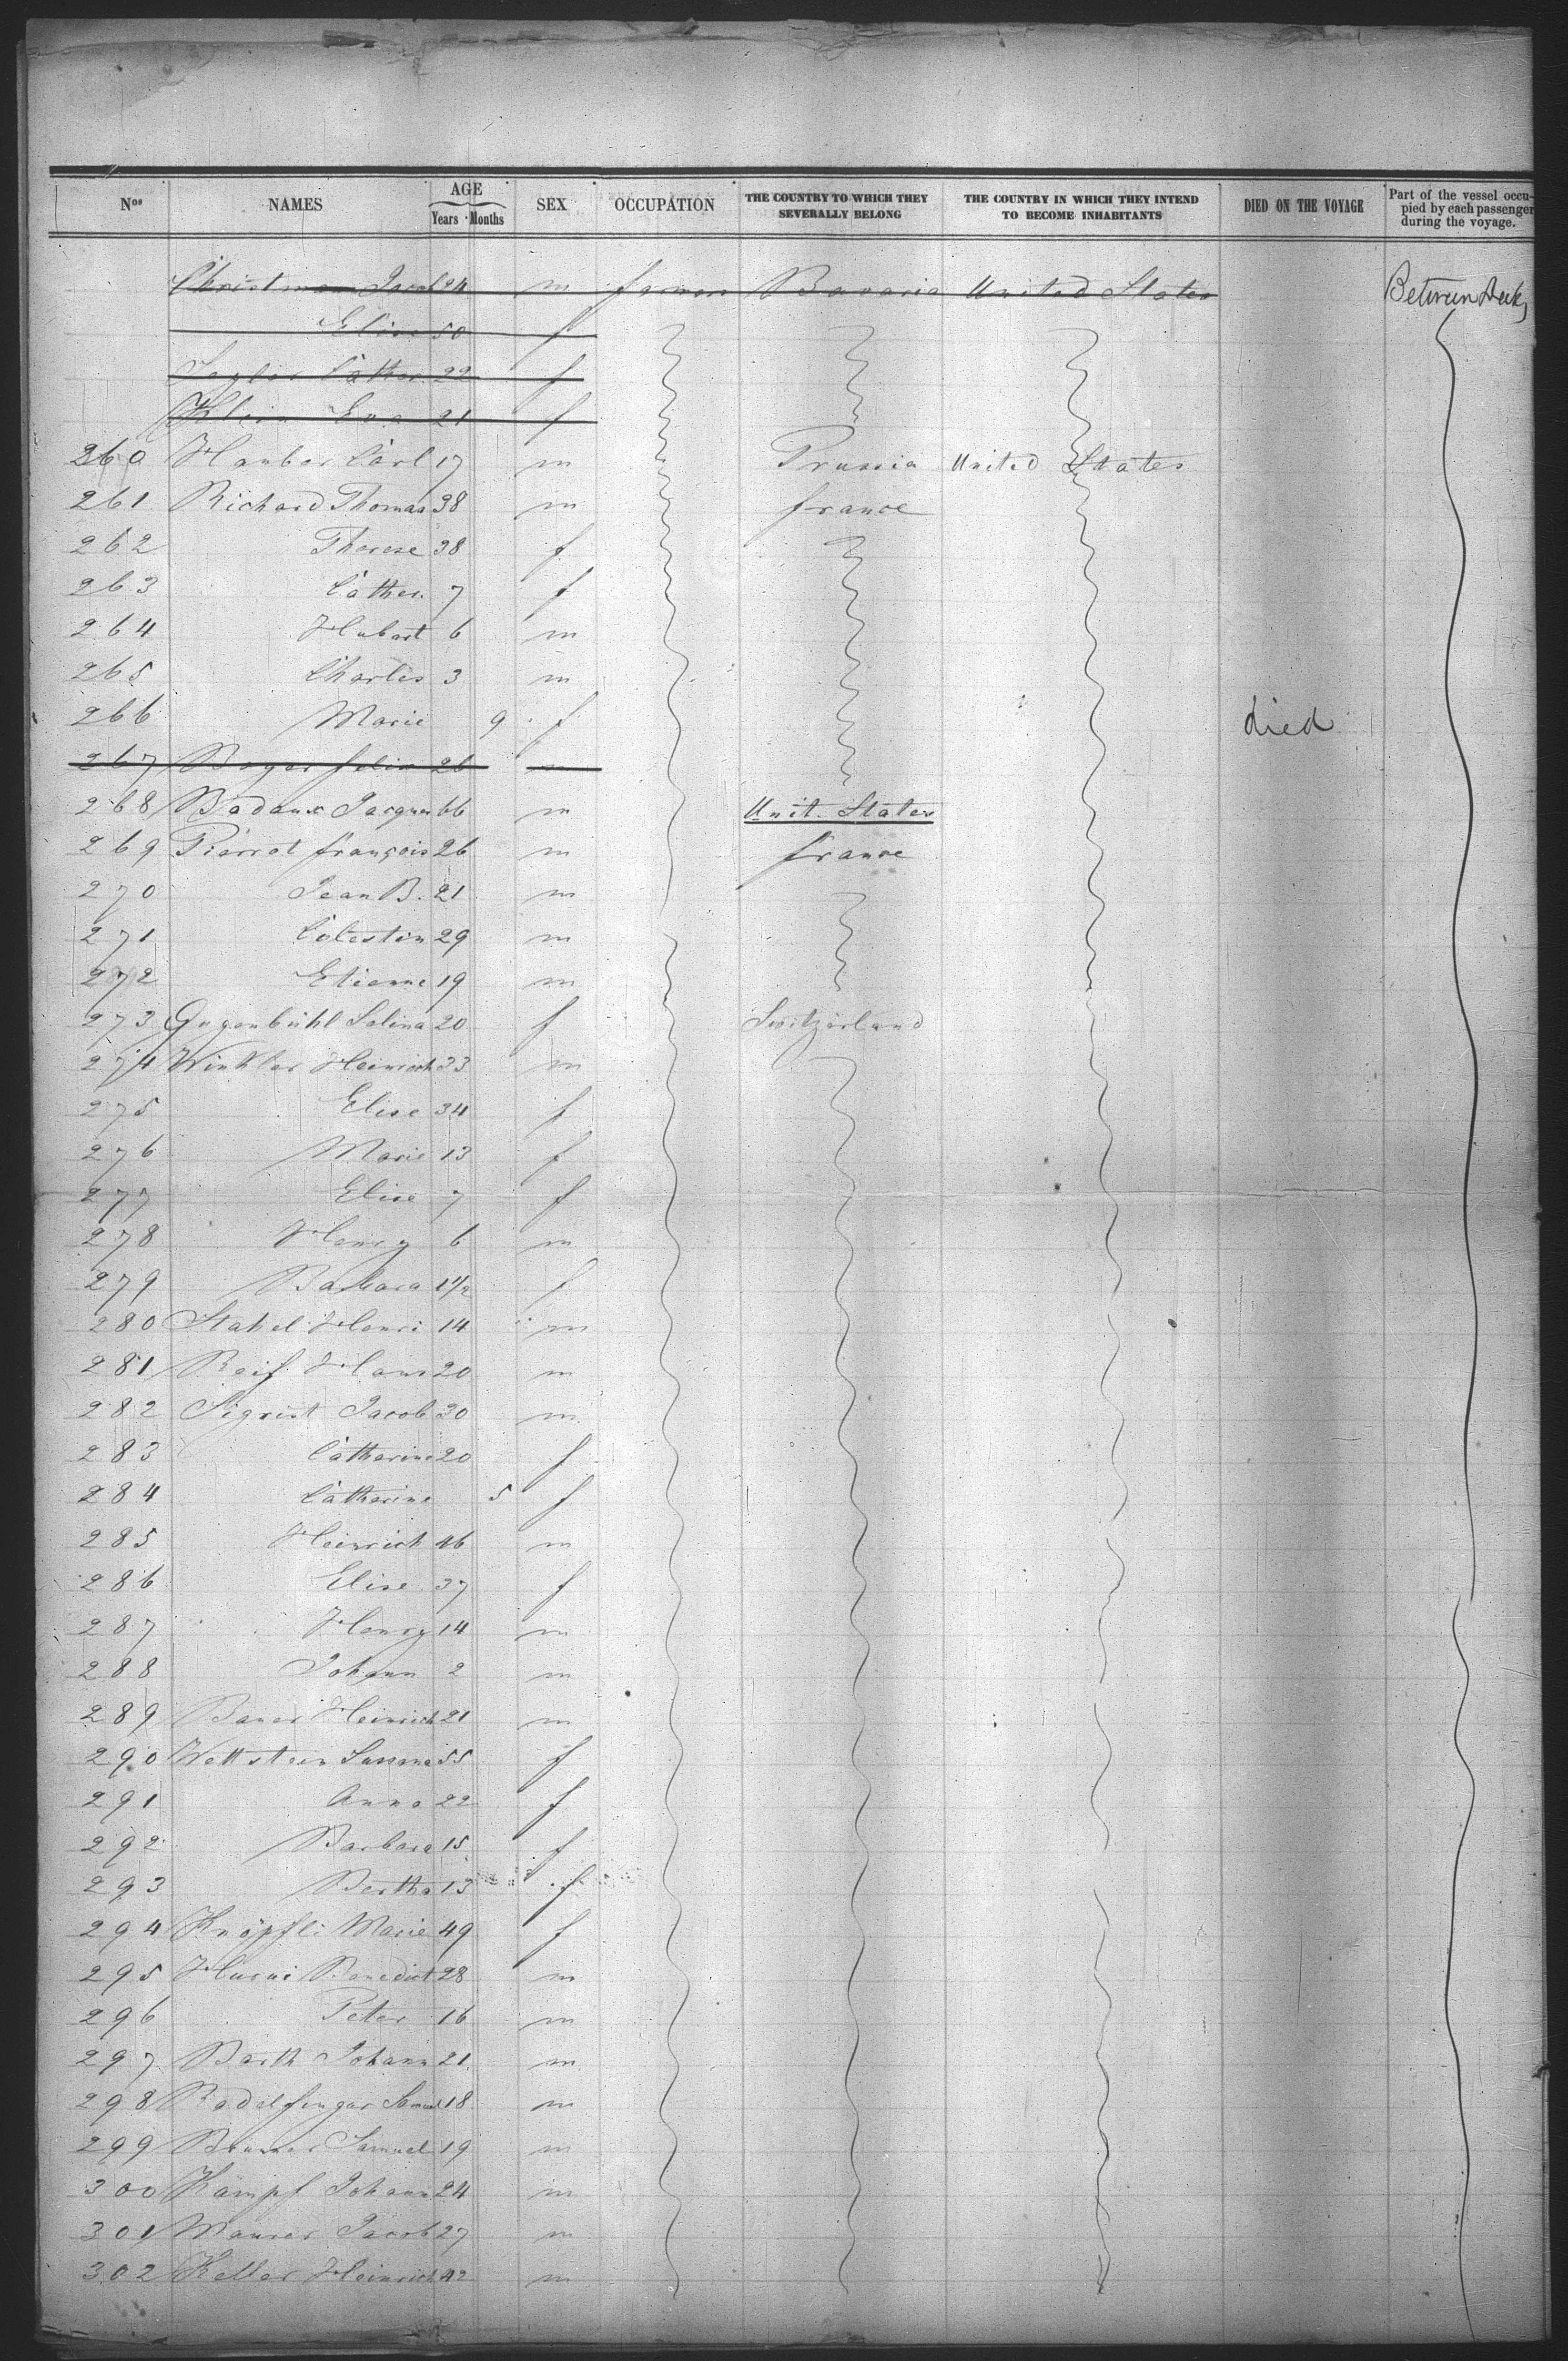 Nos NAMES AGE Years Months SEX OCCUPATION THE COUNTRY TO WHICH THEY SEVERALLY BELONG THE COUNTRY IN WHICH THEY INTEND TO BECOME INHABITANTS DIED ON THE VOYAGE Part of the vessel occupied by each passenger during the voyage.
Christman Jacob 24 m farmer Bavaria United States Between Decks
Elise 50 f
Cather. 22 f
Klein Eva 21 f
260 Hauber Carl 17 m Prussia United States
261 Richard Thomas 38 m france
262 Therese 38 f
263 Cather. 7 f
264 Hubert 6 m
265 Charles 3 m
266 Marie 9 f died
267 Boyer felix 26 m
268 Badaux Jacques 66 m Unit. States
269 Pierrot françois 26 m france
270 Jean B. 21 m
271 Célestin 29 m
272 Etienne 19 m
273 Gugenbühl Selina 20 f Switzerland
274 Winkler Heinrich 33 m
275 Elise 34 f
276 Marie 13 f
277 Elise 7 f
278 Henry 6 m
279 Barbara 1 1/2 f
280 Stahel Henri 14 m
281 Reif Hans 20 m
282 Sigrist Jacob 30 m
283 Catharine 20 f
284 Catharine 5 f
285 Heinrich 46 m
286 Elise 37 f
287 Henry 14 m
288 Johann 2 m
289 Heinrich 21 m
290 Wettstein Susana 55 f
291 Anna 22 f
292 Barbara 15 f
293 Bertha 13 f
294 Knöpfli Marie 49 f
295 Hurni Benedict 28 m
296 Peter 16 m
297 Barth Johann 21 m
298 Radelfinger Samuel 18 m
299 Samuel 19 m
300 Kämpf Johann 24 m
301 Maurer Jacob 27 m
302 Keller Heinrich 42 m